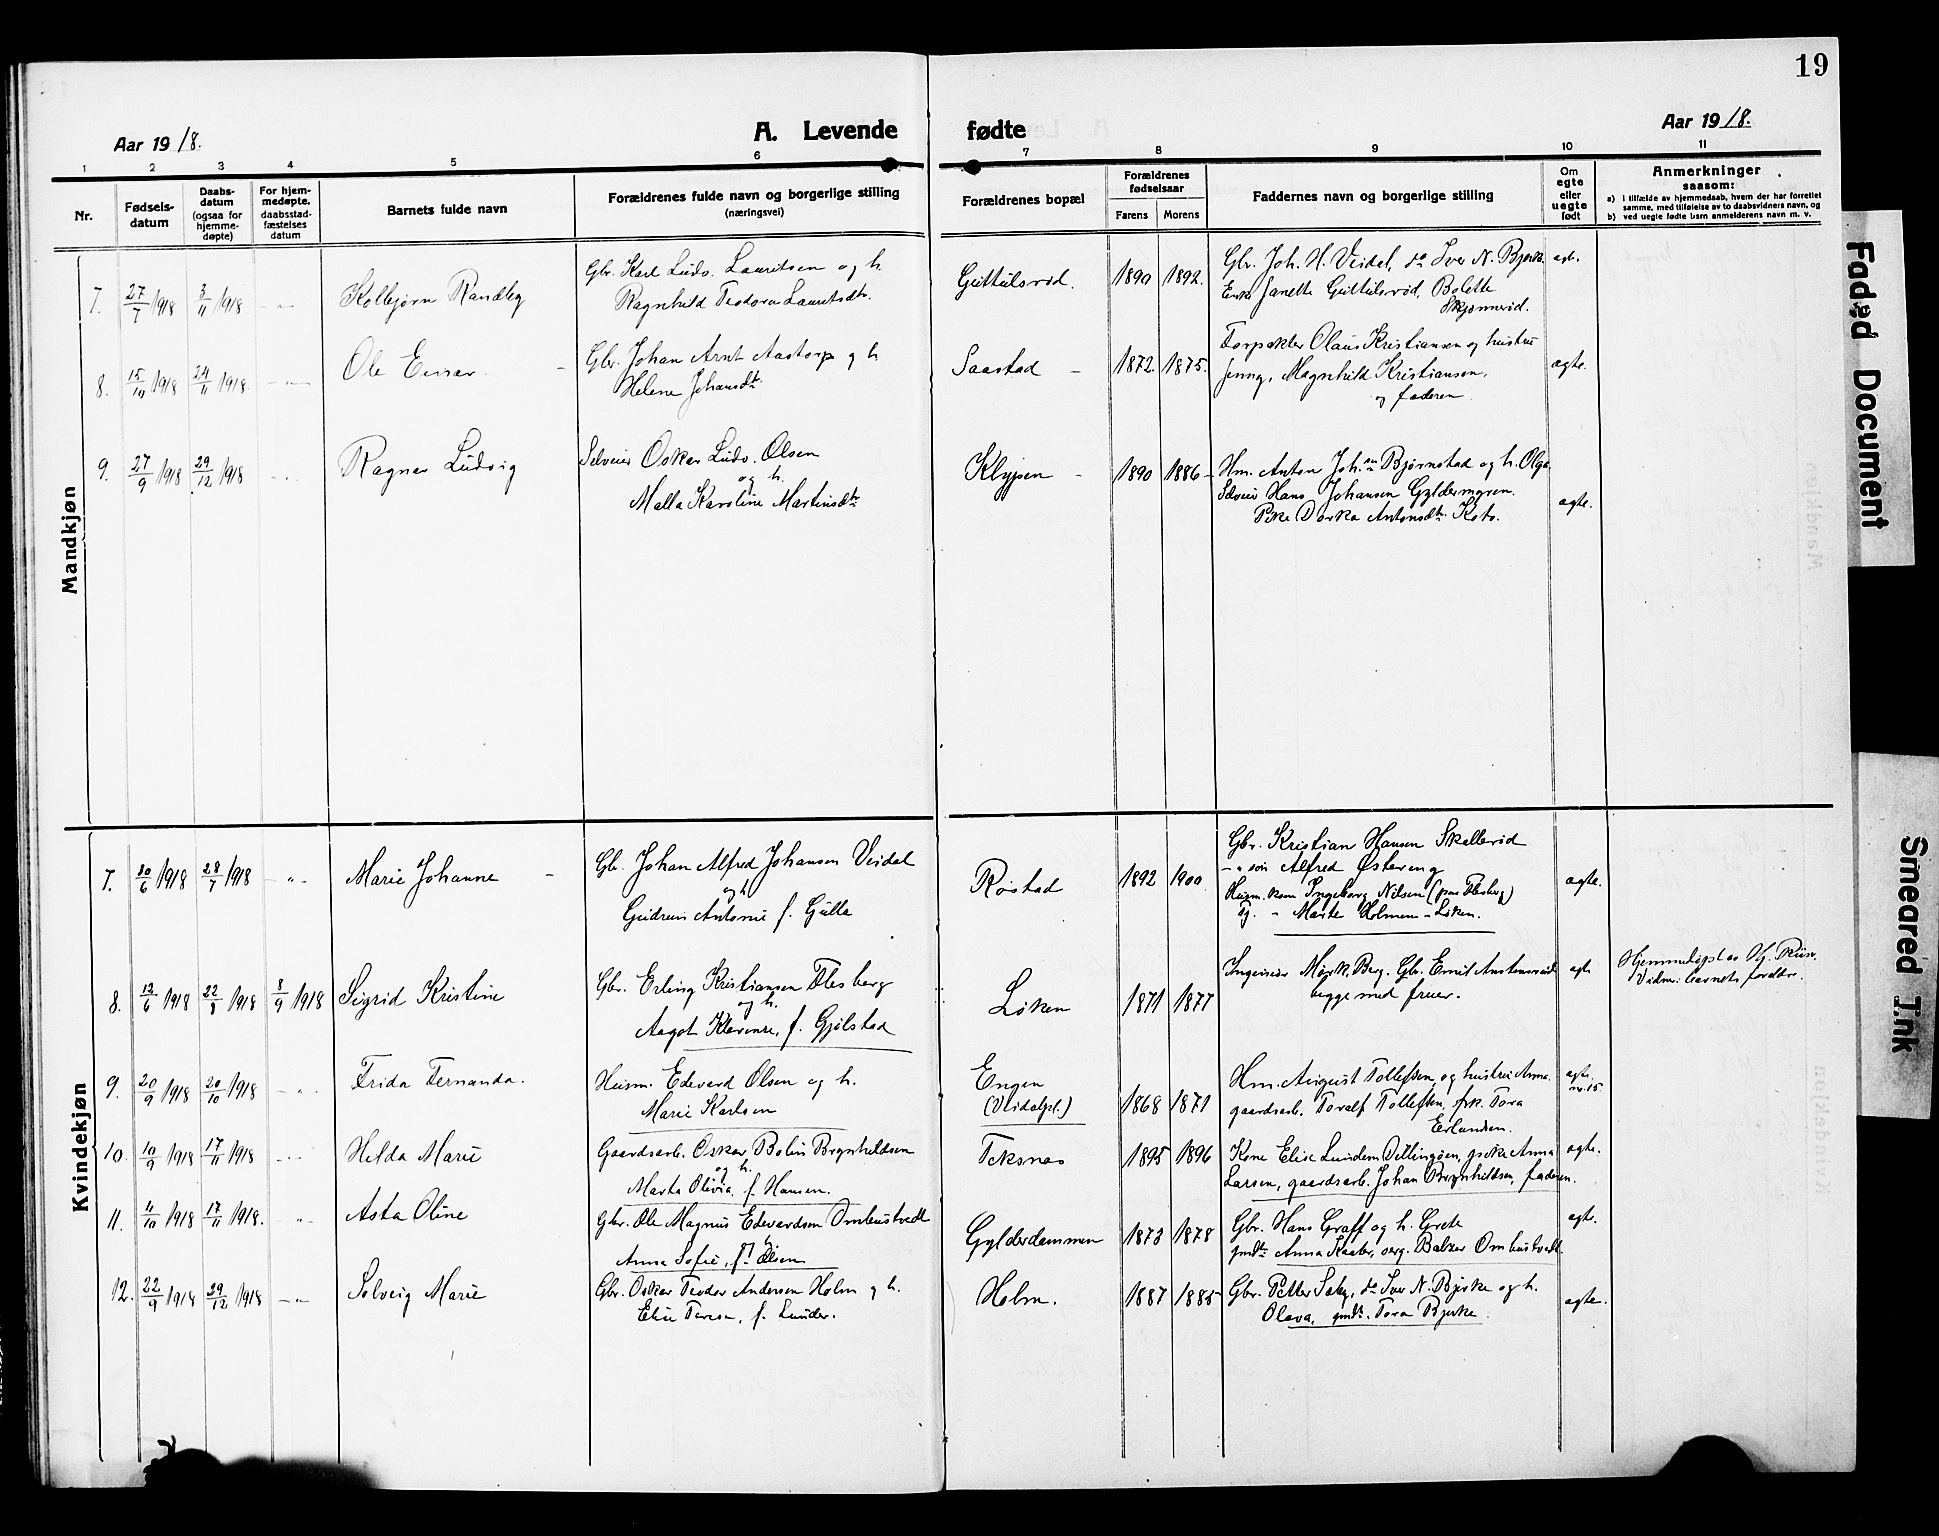 19
Aar 1918.
A. Levende fødte
Aar 1918.
1 2 3 4 5 6 7 8 9 10 11
Nr.
Fødselsdatum
Daabsdatum
(ogsaa for
hjemmedøpte)
For hjemmedøpte,
daabsstadfæstelses
datum
Barnets fulde navn
Forældrenes fulde navn og borgerlige stilling
(næringsvei)
Forældrenes bopæl
Forældrenes
fødselsaar
Farens Morens
Faddernes navn og borgerlige stilling
Om
egte
eller
uegte
født
Anmerkninger
saasom:
a) i tilfælde av hjemmedaab, hvem der har forrettet
samme, med tilføielse av to daabsvidners navn, og
b) ved uegte fødte barn anmelderens navn m. v.
Mandkjøn
7. 27/7 1918 3/11 1918 - „ - Kolbjørn Randleg
Gbr. Karl Ludv. Lauritsen og h.
Ragnhild Teodora Lauritsdtr.
Guttulsrød. 1890 1892.
Gbr. Joh. H. Veidal, do Iver N. Bjerke.
Enke Janette Guttulsrød, Bolette
Skjønnerød.
8. 15/10 1918 24/11 1918 - „ - Ole Einar. -
Gbr. Johan Arnt Aastorp og h
Helene Johansdtr.
Saastad - 1872. 1875.
Forpakter Olaus Kristiansen og hustru
Jenny, Magnhild Kristiansen,
og faderen.
egte.
9. 27/9 1918 29/12 1918 - „ - Ragnar Ludvig
Selveier Oskar Ludv. Olsen
og h.
Malla Karoline Martinsdtr
Klypen - 1890 1886 -
Hm. Anton Joh.sen Bjørnstad og h. Olga.
Selveier Hans Johansen Gyldermyren.
Pike Dorka Antonsdtr. Kato.
egte.
Kvindekjøn
7. 20/6 1918 28/7 1918 - „ - Marie Johanne -
Gb. Johan Alfred Johansen Veidal
og h
Gudrun Antonie f. Gulla
Røstad 1892 1900.
Gbr. Kristian Hansen Skallerød
- „ søn Alfred Østereng
Husm. kone Ingeborg Nilsen (paa Flesberg)
Tj. „ Marte Holmen - Løken.
egte.
8. 12/6 1918 22/8 1918 8/9 1918 Sigrid Kristine
Gbr. Erling Kristiansen Flesberg
og h.
Aagot Klarense, f. Gjølstad
Løken 1871 1877
Ingeniør Mørk, Berg. Gbr. Emil Austensrud
begge med fruer.
egte
Hjemmedøpt av Hj. Riise.
Vidner: barnets foreldr.
9. 20/9 1918 20/10 1918 - „ Frida Fernanda.
Husm. Edevard Olsen og h.
Marie Karlsen
Engen
(Veidalpl.) 1868 1871
Hm. August Tollefsen, og hustru Anna.
gaardsarb. Toralf Tollefsen, frk. Tora
Erlandsen.
egte.
nr. 15
10. 10/9 1918 17/11 1918 - „ - Helda Marie
Gaardsarb. Oskar Bolin Brynhildsen
og h.
Marta Olivia, f. Hansen.
Teksnes 1895 1896
Kone Elise Lundem Dillingøen, pike Anna
Larsen, gaardsarb. Johan Brynhildsen, faderen.
egte.
11. 4/10 1918 17/11 1918. - „ Asta Oline
Gbr. Ole Magnus Edevardsen Ombustvedt
Anna Sofie, f. Olsen
Gylderdammen 1873 1878
Gbr. Hans Graff og h. Grete
gmdtr Anna Kaabr, serg. Balzer Ombustvedt.
egte.
12. 22/9 1918 29/12 1918 - „ Solveig Marie
Gbr. Oskar Teodor Andersen Holm og h.
Elise Teresa, f. Lunder.
Holm. 1887 1885
Gbr. Petter Saby, do Iver N. Bjerke og h.
Olava, gmdtr. Tora Bjerke.
egte.
Faded Document
Smeared Ink